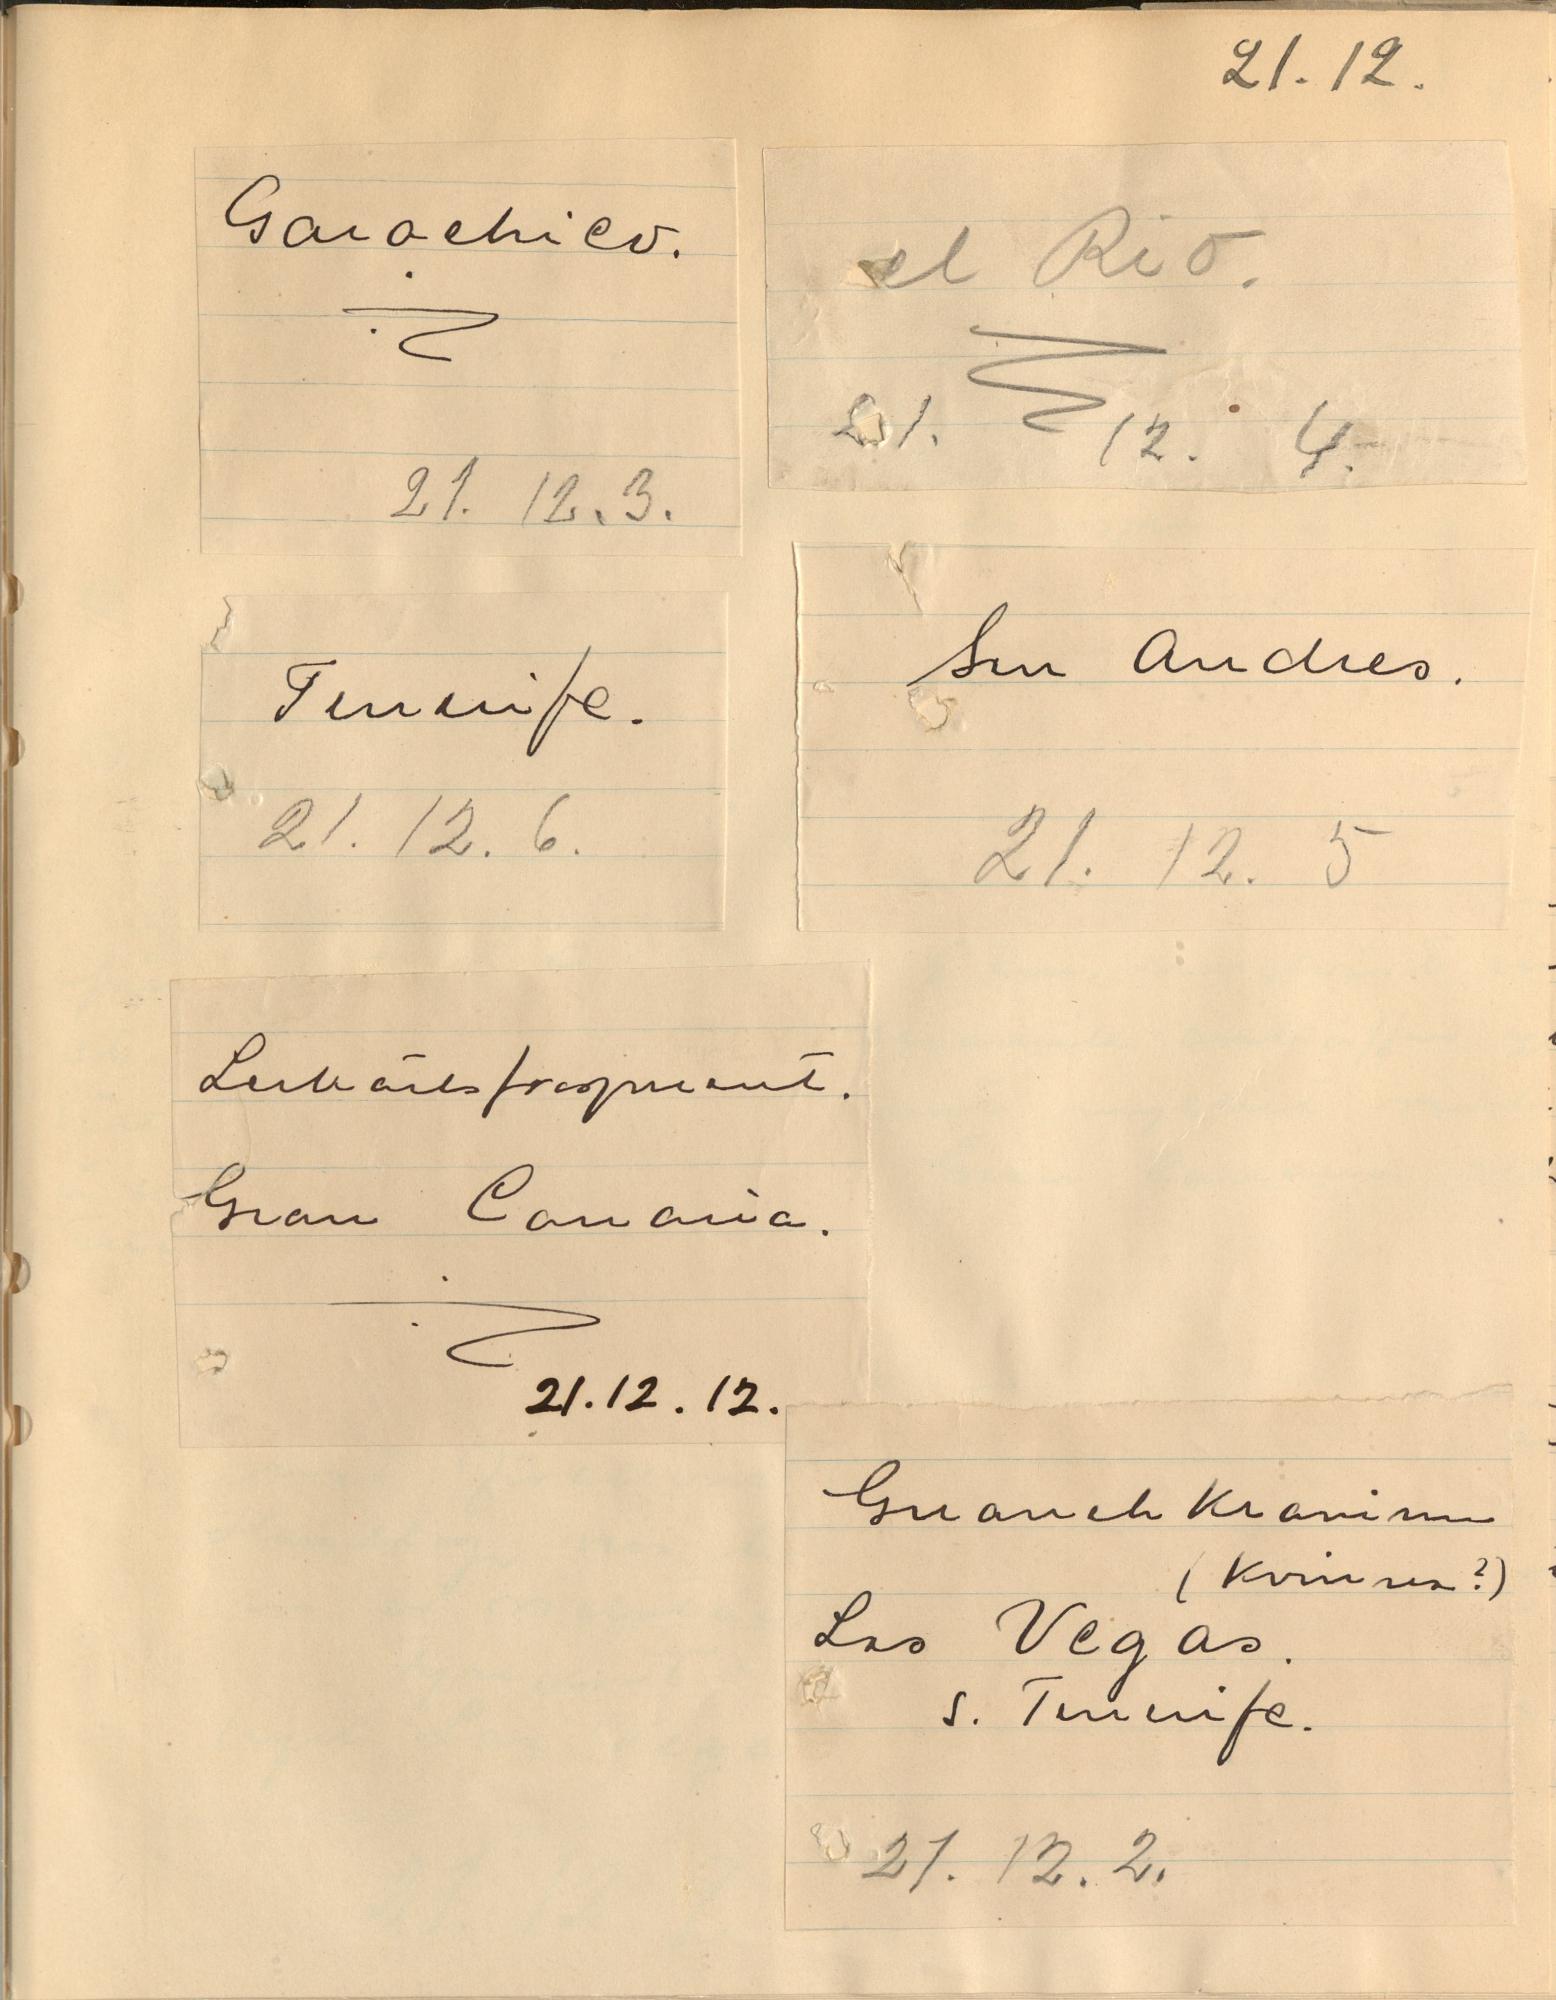 21. 12.
Garachico.
21. 12. 3.
el Rio.
21. 12. 4.
Tenerife.
21. 12. 6.
San Andres.
21. 12. 5
Lerkärlsfragment.
Gran Canaria.
21. 12. 12.
Guanchkranium
(Kvinna?)
Las Vegas.
S. Tenerife.
21. 12. 2.